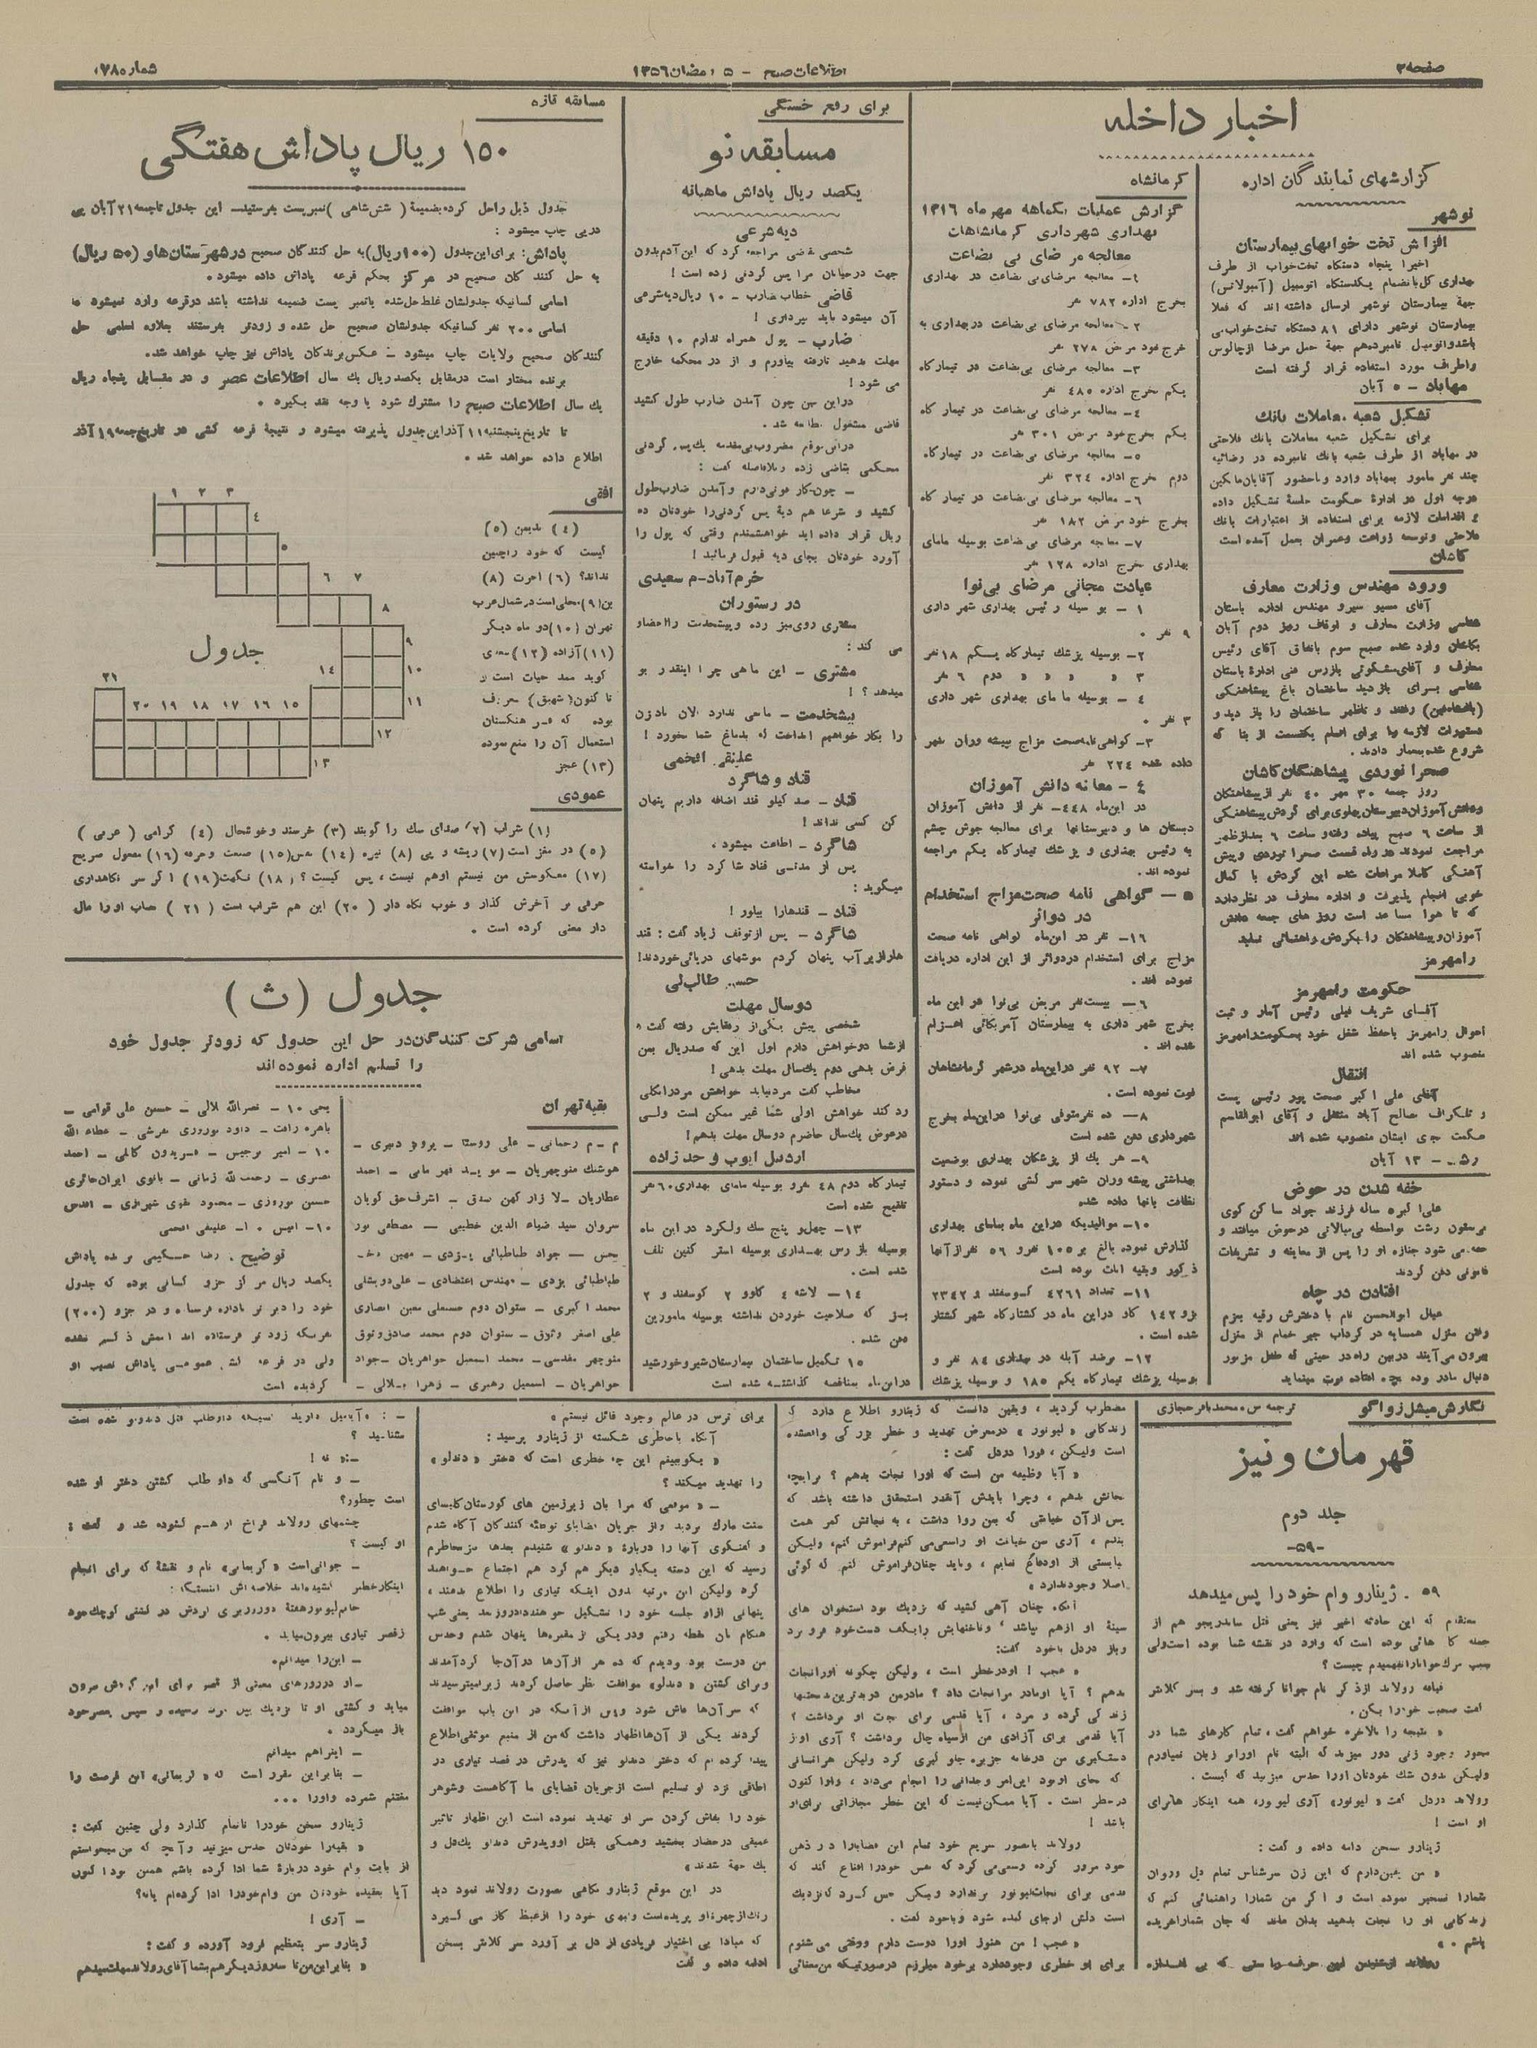 صفحه ۲
اطلاعات صبح - ۵ رمضان ۱۳۵۶
شماره ۷۸۰
اخبار داخله
گزارشهای نمایندگان اداره
نوشهر
افزایش تخت خوابهای بیمارستان
اخیرا پنجاه دستگاه تخت‌خواب از طرف
بهداری کل بانضمام یکدستگاه اتومبیل (آمبولانس)
جهة بیمارستان نوشهر ارسال داشته اند که فعلا
بیمارستان نوشهر دارای ۸۱ دستگاه تخت‌خواب می
باشد و اتومبیل نامبرده هم جهة حمل مرضا از چالوس
و اطراف مورد استفاده قرار گرفته است
مهاباد - ۵ آبان
تشکیل شعبه معاملات بانک
برای تشکیل شعبه معاملات بانک فلاحتی
در مهاباد از طرف شعبه بانک نامبرده در رضائیه
چند نفر مامور بمهاباد وارد و باحضور آقایان مالکین
درجه اول در ادارۀ حکومت جلسۀ تشکیل داده
و اقدامات لازمه برای استفاده از اعتبارات بانک
فلاحتی و توسعه زراعت و عمران بعمل آمده است
کاشان
ورود مهندس وزارت معارف
آقای مسیو سیرو مهندس اداره باستان
شناسی وزارت معارف و اوقاف روز دوم آبان
بکاشان وارد شده صبح سوم باتفاق آقای رئیس
معارف و آقای مشکوتی بازرس فنی ادارۀ باستان
شناسی برای بازدید ساختمان باغ پیشاهنگی
رفتند و ناظهر ساختمان را باز دید و
دستورات لازمه را برای اتمام یکقسمت از بنا که
شروع شده بمعمار دادند.
صحرا نوردی پیشاهنگان کاشان
روز جمعه ۳۰ مهر ۴۰ نفر از پیشاهنگان
ودانش آموزان دبیرستان پهلوی برای گردش پیشاهنگی
از ساعت ۶ صبح پیاده رفته و ساعت ۶ بعدازظهر
مراجعت نمودند در راه قسمت صحرا نوردی و پیش
آهنگی کاملا مراعات شده این گردش با کمال
خوبی انجام پذیرفت و اداره معارف در نظر دارد
که تا هوا مساعد است روز های جمعه دانش
آموزان و پیشاهنگان را بگردش راهنمائی نماید
رامهرمز
حکومت رامهرمز
آقای شریف فیلی رئیس آمار و ثبت
احوال رامهرمز باحفظ شغل خود بحکومت رامهرمز
منصوب شده اند
انتقال
آقای علی اکبر صحت پور رئیس پست
و تلگراف صالح آباد منتقل و آقای ابوالقاسم
حکمت جای ایشان منصوب شده اند
رشت - ۱۳ آبان
خفه شدن در حوض
علی اکبر ۵ ساله فرزند جواد ساکن کوی
بیستون رشت بواسطه بی‌مبالاتی درحوض میافتد و
خفه می شود جنازه او را پس از معاینه و تشریفات
قانونی دفن کردند
افتادن در چاه
عیال ابوالحسن نام با دخترش رقیه بعزم
رفتن منزل همسایه در گرداب جیر خمام از منزل
بیرون می‌آیند دربین راه در حینی که طفل مزبور
دنبال مادر وده بچاه افتاده فوت مینماید
کرمانشاه
گزارش عملیات یکماهه مهر ماه ۱۳۱۶
بهداری شهرداری کرمانشاهان
معالجه مرضای بی بضاعت
۱- معالجه مرضای بی‌بضاعت در بهداری
بخرج اداره ۷۸۲ نفر
۲- معالجه مرضای بی‌بضاعت دربهداری به
خرج خود مرض ۲۷۸ نفر
۳- معالجه مرضای بی‌بضاعت در تیمارگاه
یکم بخرج اداره ۴۸۵ نفر
۴- معالجه مرضای بی‌بضاعت در تیمارگاه
یکم بخرج خود مرض ۳۰۱ نفر
۵- معالجه مرضای بی‌بضاعت در تیمارگاه
دوم بخرج اداره ۳۲۴ نفر
۶- معالجه مرضای بی‌بضاعت در تیمارگاه
بخرج خود مرض ۱۸۲ نفر
۷- معالجه مرضای بی‌بضاعت بوسیله مامای
بهداری بخرج اداره ۱۲۸ نفر
عیادت مجانی مرضای بی‌نوا
۱ - بوسیله رئیس بهداری شهرداری
۹ نفر .
۲- بوسیله پزشک تیمارگاه یکم ۱۸ نفر
۳ » » » دوم ۶ نفر
۴ - بوسیله مامای بهداری شهرداری
۳ نفر .
۳- گواهی نامه صحت مزاج پیشه وران شهر
داده شده ۲۲۴ نفر
۴ - معاینه دانش آموزان
در این ماه ۴۴۸ نفر از دانش آموزان
دبستان ها و دبیرستانها برای معالجه جوش چشم
به رئیس بهداری و پزشک تیمارگاه یکم مراجعه
نموده اند.
۵ - گواهی نامه صحت مزاج استخدام
در دوائر
۱۶- نفر در این ماه گواهی نامه صحت
مزاج برای استخدام دردوائر از این اداره دریافت
نموده اند.
۶ - بیست نفر مریض بی‌نوا در این ماه
بخرج شهرداری به بیمارستان آمریکائی اعزام
شده اند .
۷- ۹۲ نفر دراین ماه درشهر کرمانشاهان
فوت نموده است.
۸ - ده نفر متوفی بی‌نوا دراین ماه بخرج
شهرداری دفن شده است
۹- هر یک از پزشکان بهداری بوضعیت
بهداشتی پیشه وران شهر سرکشی نموده و دستور
نظافت بانها داده شده
۱۰- موالیدیکه دراین ماه بمامای بهداری
گذارش نموده بالغ بر ۱۰۵ نفر و ۵۶ نفر از آنها
ذکور و بقیه اناث بوده است
۱۱- تعداد ۴۲۶۱ گوسفند و ۲۳۴۲
بز و ۱۴۲ گاو دراین ماه در کشتارگاه شهر کشتار
شده است .
۱۲- برضد آبله در بهداری ۸۴ نفر و
بوسیله پزشک تیمارگاه یکم ۱۸۵ و بوسیله پزشک
برای رفع خستگی
مسابقه نو
یکصد ریال پاداش ماهیانه
دیه شرعی
شخصی بقاضی مراجعه کرد که این آدم بدون
جهت درخیابان مرا پس گردنی زده است !
قاضی خطاب بضارب - ۱۰ ریال دیه شرعی
آن میشود باید بپردازی !
ضارب - پول همراه ندارم ۱۰ دقیقه
مهلت بدهید تارفته بیاورم و از در محکمه خارج
می شود !
دراین بین چون آمدن ضارب طول کشید
قاضی مشغول مطالعه شد.
دراین موقع مضروب بی‌مقدمه یک پس گردنی
محکمی بقاضی زده و بلافاصله گفت :
- چون کار فوتی دارم و آمدن ضارب طول
کشید و شرعا هم دیۀ پس گردنی را خودتان ده
ریال قرار داده اید خواهشمندم وقتی که پول را
آورد خودتان بجای دیه قبول فرمائید !
خرم‌آباد-م سعیدی
در رستوران
مشتری روی میز زده و پیشخدمت را احضار
می کند :
مشتری - این ماهی چرا اینقدر بو
میدهد ؟ !
پیشخدمت - ماهی ندارد الان بادزن
را بکار خواهیم انداخت که بدماغ شما نخورد !
علینقی افخمی
قناد و شاگرد
قناد - صد کیلو قند اضافه داریم پنهان
کن کسی نداند !
شاگرد - اطاعت میشود .
پس از مدتی قناد شاگرد را خواسته
میگوید :
قناد - قندهارا بیاور !
شاگرد - پس از توقف زیاد گفت : قند
هارازیرآب پنهان کردم موشهای دریائی خوردند!
حسن طالب‌لی
دوسال مهلت
شخصی پیش یکی از رفقایش رفته گفت :
ازشما دوخواهش دارم اول این که صدریال بمن
قرض بدهی دوم یک‌سال مهلت بدهی !
مخاطب گفت مردنباید خواهش مردرابکلی
رد کند خواهش اولی شما غیر ممکن است ولی
درعوض یک‌سال حاضرم دوسال مهلت بدهم !
اردبیل ایوب وحدزاده
تیمارگاه دوم ۴۸ نفر و بوسیله مامای بهداری ۶۰ نفر
تلقیح شده است
۱۳- چهل و پنج سگ ولگرد در این ماه
بوسیله بازرس بهداری بوسیله استر کنین تلف
شده است.
۱۴- لاشه ۴ گاوو ۲ گوسفند و ۲
بزی که صلاحیت خوردن نداشته بوسیله مامورین
دفن شده .
۱۵ تکمیل ساختمان بیمارستان شیروخورشید
دراین ماه بمناقصه گذاشته شده است
مسابقه تازه
۱۵۰ ریال پاداش هفتگی
جدول ذیل راحل کرده بضمیمۀ (شش شاهی) تمبرپست بفرستید- این جدول تاجمعه ۲۱ آبان پی
درپی چاپ میشود :
پاداش: برای این جدول (۱۰۰ریال) به حل کنندگان صحیح درشهرستان‌ها و (۵۰ ریال)
به حل کنندگان صحیح در مرکز بحکم قرعه پاداش داده میشود.
اسامی کسانیکه جدولشان غلط حل شده یاتمبر پست ضمیمه نداشته باشد درقرعه وارد نمیشود
اسامی ۲۰۰ نفر کسانیکه جدولشان صحیح حل شده و زودتر بفرستند بعلاوه اسامی حل
کنندگان صحیح ولایات چاپ میشود - عکس برندگان پاداش نیز چاپ خواهد شد.
برنده مختار است درمقابل یکصد ریال یک سال اطلاعات عصر و در مقابل پنجاه ریال
یک سال اطلاعات صبح را مشترک شود یا وجه نقد بگیرد .
تا تاریخ پنجشنبه ۱۱ آذر این جدول پذیرفته میشود و نتیجۀ قرعه کشی در تاریخ جمعه ۱۹ آذر
اطلاع داده خواهد شد .
افقی
(۴) بدیمن (۵)
کیست که خود راچنین
نداند؟ (۶) اجرت (۸)
بن (۹) محلی است در شمال غرب
تهران (۱۰) دو ماه دیگر
(۱۱) آزاده (۱۲)
گوید ممد حیات است و
تا کنون (شهیق) معرف
بوده که فرهنگستان
استعمال آن را منع نموده
(۱۳) عجز
۱ ۲ ۳
۴
۵
۶ ۷
۸
۹
۱۰
۱۱
۱۲
۱۳
۱۴
۱۵ ۱۶ ۱۷ ۱۸ ۱۹ ۲۰
۲۱
جدول
عمودی
(۱) شراب (۲) صدای سگ را گویند (۳) خرسند وخوشحال (۴) گرامی (عربی)
(۵) در مغز است (۷) ریشه و پی (۸) تیره (۱۴) (۱۵) صنعت وحرفه (۱۶) معمول صریح
(۱۷) معکوسش من نیستم اوهم نیست، پس کیست ؟ (۱۸) نکهت (۱۹) اگر سر نگاهداری
حرفی بر آخرش گذار و خوب نگاه دار (۲۰) این هم شراب است (۲۱) حساب اورا مال
دار معنی کرده است .
جدول (ث)
اسامی شرکت کنندگان در حل این جدول که زودتر جدول خود
را تسلیم اداره نموده‌اند
بقیه تهران
م - م رحمانی - علی روستا - پرویز دبیری -
هوشنگ منوچهریان - موید قهرمانی - احمد
عطاریان - لازار کهن صدق - اشرف حق گویان
سروان سید ضیاء الدین خطیبی - مصطفی پور
- جواد طباطبائی یزدی - مهین دخت
طباطبائی یزدی - مهندس اعتضادی - علی درویشلی
محمد اکبری - ستوان دوم حسنعلی معین انصاری
علی اصغر وثوق - ستوان دوم محمد صادق وثوق
منوچهر مقدسی - محمد اسمعیل جواهریان - جواد
جواهریان - اسمعیل رهبری - زهرا جلالی -
یحیی ۱۰ - نصرالله لالی - حسن علی قوامی -
باهره رافت - داود نوروزی عرشی - عطاء الله
۱۰ - امیر نرجیس - فریدون کاتمی - احمد
نصیری - رحمت الله زمانی - بانوی ایران حائری
حسن نوروزی - محمود تقوی شهربازی - اقدس
۱۰ - انیس ۱۰ - علینقی افخمی
توضیح . رضا حکیمی برنده پاداش
یکصد ریال مرکز جزو کسانی بوده که جدول
خود را دیرتر باداره فرستاده و در جزو (۲۰۰)
نفریکه زودتر فرستاده اند اسمش ذکر نشده
ولی در قرعه کشی عمومی پاداش نصیب او
گردیده است
نگارش میشل زواگو
ترجمه س. محمدباقر حجازی
قهرمان ونیز
جلد دوم
-۵۹-
۵۹ . ژینارو وام خود را پس میدهد
معتقدم که این حادثه اخیر نیز یعنی قتل ساندریجو هم از
جمله کارهائی بوده است که وارد در نقشه شما بوده است ولی
سبب مرگ جوانارا نفهمیدم چیست ؟
قیافه رولاند ازذکر نام جوانا گرفته شد و بسر کلانتر
گفت صحبت خودرا بکن.
« نتیجه را بالاخره خواهم گفت ، تمام کارهای شما در
محور وجود زنی دور میزند که البته نام اورا بر زبان نمیاورم
ولیکن بدون شک خودتان اورا حدس میزنید که کیست .
رولاند دردل گفت « لیونور» آری لیونور، همه اینکارها برای
او است !
ژینارو سخن ادامه داده و گفت :
« من یقین دارم که این زن سرشناس تمام دل وروان
شمارا تسخیر نموده است و اگر من شمارا راهنمائی کنم که
زندگانی او را نجات بدهید بدان ماند که جان شمارا خریده
باشم . »
مضطرب گردید ، ویقین دانست که ژینارو اطلاع دارد که
زندگانی « لیونور » درمعرض تهدید و خطر بزرگی واقعشده
است ولیکن ، فورا دردل گفت :
« آیا وظیفه من است که اورا نجات بدهم ؟ برایچه
نجاتش بدهم ، وچرا بایدش آنقدر استحقاق داشته باشد که
پس ازآن خیانتی که بمن روا داشت ، به نجاتش کمر همت
بندم ، آری من خیانت او راسعی می‌کنم فراموش کنم، ولیکن
بایستی از اودفاع نمایم ، وباید چنان فراموش کنم که گوئی
اصلا وجود ندارد »
آنگاه چنان آهی کشید که نزدیک بود استخوان های
سینۀ او ازهم بپاشد ، وناخنهایش رابکف دست خود فرو برد
وباز دردل باخود گفت:
« عجب ! اودرخطر است ، ولیکن چگونه اورانجات
بدهم ؟ آیا اومادر مرانجات داد ؟ مادرمن دربدترین بدبختیها
زندگی کرده و مرد ، آیا قدمی برای نجات او برداشت ؟
آیا قدمی برای آزادی من ازسیاه چال برداشت ؟ آری او از
دستگیری من درخانه جزیره جلوگیری کرد ولیکن هرانسانی
که بجای اوبود این‌امر وجدانی را انجام می‌داد ، واوا کنون
درخطر است . آیا ممکن‌نیست که این خطر مجازاتی برای او
باشد !
رولاند باتصور سریع خود تمام این قضایارا در ذهن
خود مرور کرده وسعی می کرد که نفس خودرا اقناع کند که
قدمی برای نجات لیونور برندارد ولیکن حس کرد که نزدیک
است دلش ازجای کنده شود وباخود گفت.
« عجب ! من هنوز اورا دوست دارم ووقتی می شنوم
برای او خطری وجوددارد برخود میلرزم درصورتیکه من معنائی
برای ترس در عالم وجود قائل نیستم »
آنگاه باخاطری شکسته از ژینارو پرسید :
« بگو ببینم این چه خطری است که دختر « دندلو »
را تهدید میکند ؟
- « موقعی که مرا بآن زیرزمین های گورستان کلیسای
سنت مارک بردید واز جریان قضایای توطئه کنندگان آگاه شدم
و گفتگوی آنها را دربارۀ « دندلو » شنیدم بعدها مرا بخاطرم
رسید که این دسته یکبار دیگر هم گرد هم اجتماع خواهند
کرد ولیکن این مرتبه بدون اینکه تیاری را اطلاع بدهند ،
پنهانی ازاو جلسه خود را تشکیل خواهند داد روز بعد یعنی شب
هنگام بآن نقطه رفتم ودریکی از مقبره‌ها پنهان شدم وحدس
من درست بود ودیدم که ده نفر ازآن‌ها درآن‌جا گردآمدند
وبرای کشتن « دندلو » موافقت نظر حاصل کردند زیرا میترسیدند
که سرآن‌ها فاش شود وپس ازآنکه در این باب موافقت
کردند یکی از آن‌ها اظهار داشت که من از منبع موثقی اطلاع
پیدا کرده ام که دختر دندلو نیز که پدرش در قصد تیاری در
اطاقی نزد او تسلیم است ازجریان قضایای ما آگاهست وشوهر
خود را بفاش کردن سر او تهدید نموده است این اظهار تاثیر
عمیقی درحضار بخشید وهمگی بقتل اووپدرش دندلو یکدل و
یک جهة شدند »
در این موقع ژینارو نگاهی بصورت رولاند نمود دید
رنگ ازچهره او پریده است ولبهای خود را ازغیظ گاز می گیرد
که مبادا بی اختیار فریادی از دل بر آورد سر کلانتر بسخن
ادامه داده و گفت
مشناسید ؟
- « نه !
- و نام آنکسی که داوطلب کشتن دختر او شده
است چطور؟
چشمهای رولاند فراخ ازهم گشوده شد و گفت :
او کیست ؟
- جوانی است « گریمانی» نام و نقشۀ که برای انجام
اینکار خطیر کشیده‌اند خلاصه‌اش اینستکه :
خانم لیونورهفتۀ دوروز برای گردش در کشتی کوچک خود
زقصر تیاری بیرون میاید .
- این‌را میدانم.
- او درروزهای معینی از قصر برای این گردش بیرون
میاید و کشتی او تا نزدیک بین لرد رسیده و سپس بقصر خود
باز میگردد .
- اینراهم میدانم
- بنابراین مقرر است که « گریمانی» این فرصت را
مغتنم شمرده واورا ...
ژینارو سخن خودرا ناتمام گذارد ولی چنین گفت :
« بقیه‌را خودتان حدس میزنید وآنچه که من میخواستم
از بابت وام خود دربارۀ شما ادا کرده باشم همین بود اکنون
آیا بعقیده خودتان من وام خودرا ادا کرده‌ام یانه؟
- آری !
ژینارو سر بتعظیم فرود آورده و گفت :
« بنابراین من تا سه‌روز دیگر هم بشما آقای رولاند مهلت میدهم